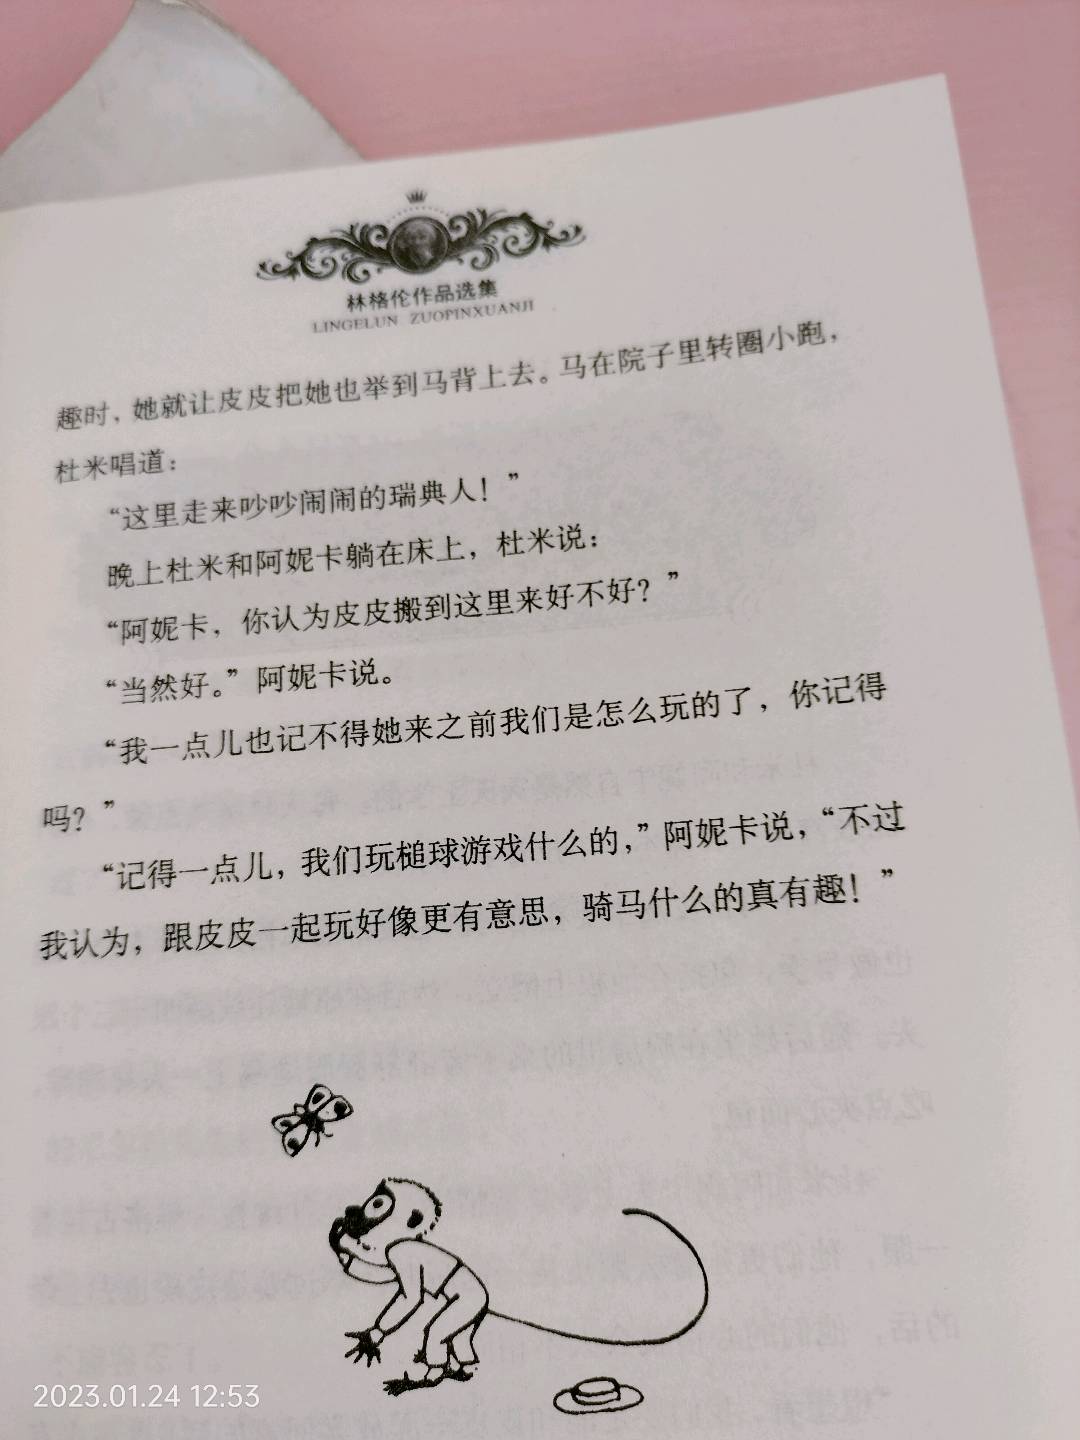 林格伦作品选集
LINGELUN ZUOPINXUANJI
趣时，她就让皮皮把她也举到马背上去。马在院子里转圈小跑，
杜米唱道：
“这里走来吵吵闹闹的瑞典人！”
晚上杜米和阿妮卡躺在床上，杜米说：
“阿妮卡，你认为皮皮搬到这里来好不好？”
“当然好。”阿妮卡说。
“我一点儿也记不得她来之前我们是怎么玩的了，你记得
吗？”
“记得一点儿，我们玩槌球游戏什么的，”阿妮卡说，“不过
我认为，跟皮皮一起玩好像更有意思，骑马什么的真有趣！”
2023.01.24 12:53